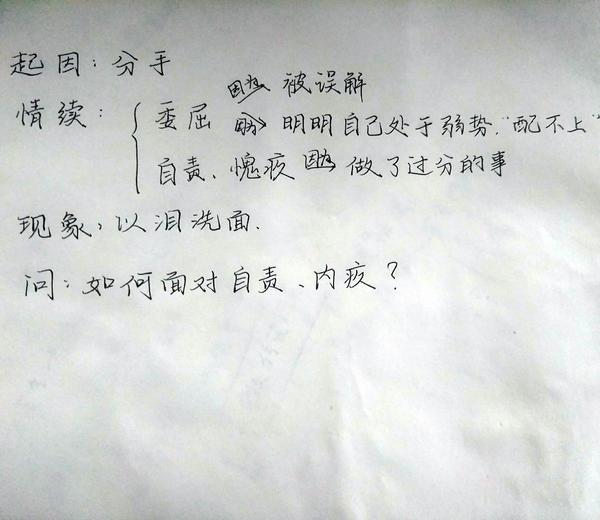 起因：分手
情续：委屈 因为 被误解
因为 明明自己处于弱势，"配不上"
自责、愧疚 因为 做了过分的事
现象，以泪洗面.
问：如何面对自责、内疚？